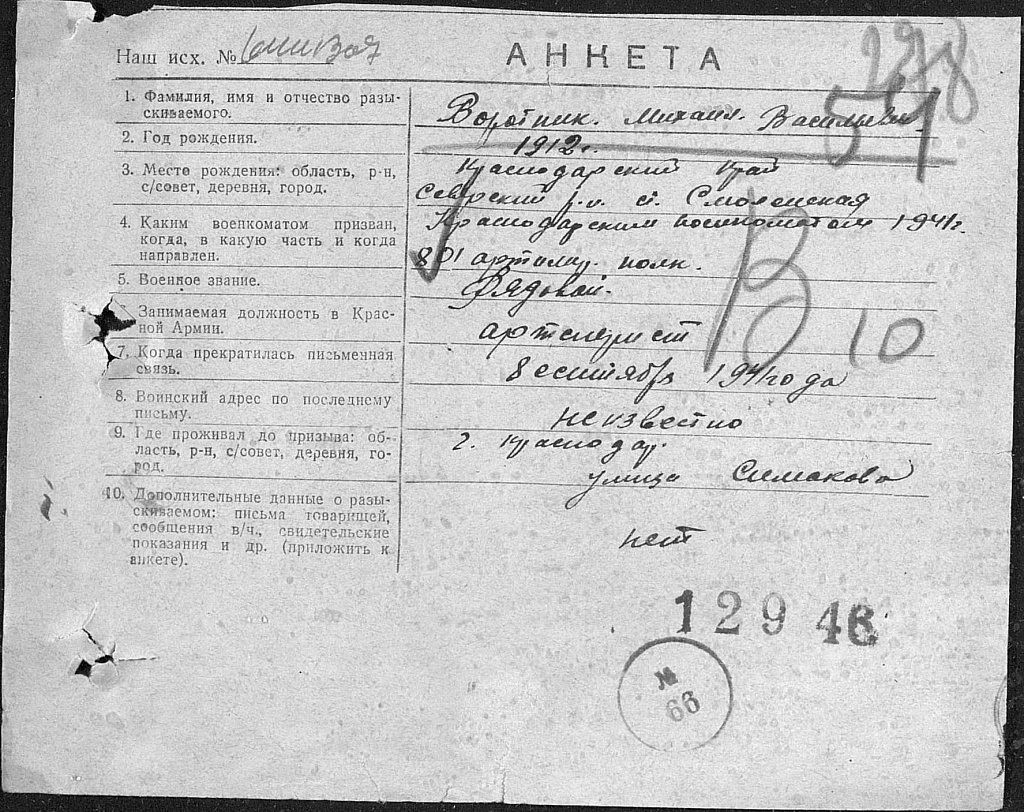 Наш исх. №
АНКЕТА
1. Фамилия, имя и отчество разы-
скиваемого.
Воротник. Михаил. Васильевич
51
2. Год рождения.
1912г.
3. Место рождения: область, р-н,
с/совет, деревня, город.
Краснодарский край
Северский р.н. ст. Смоленская
4. Каким военкоматом призван,
когда, в какую часть и когда
направлен.
Краснодарским военкоматом 1941г.
801 артилир. полк.
5. Военное звание.
Рядовой.
Занимаемая должность в Крас-
ной Армии.
7. Когда прекратилась письменная
связь.
8 сентября 1941года
В 10
8. Воинский адрес по последнему
письму.
неизвестно
9. Где проживал до призыва: об-
ласть, р-н, с/совет, деревня, го-
род.
г. Краснодар.
улица Симакова
10. Дополнительные данные о разы-
скиваемом: письма товарищей,
сообщения в/ч., свидетельские
показания и др. (приложить к
анкете).
нет
12946
№
66